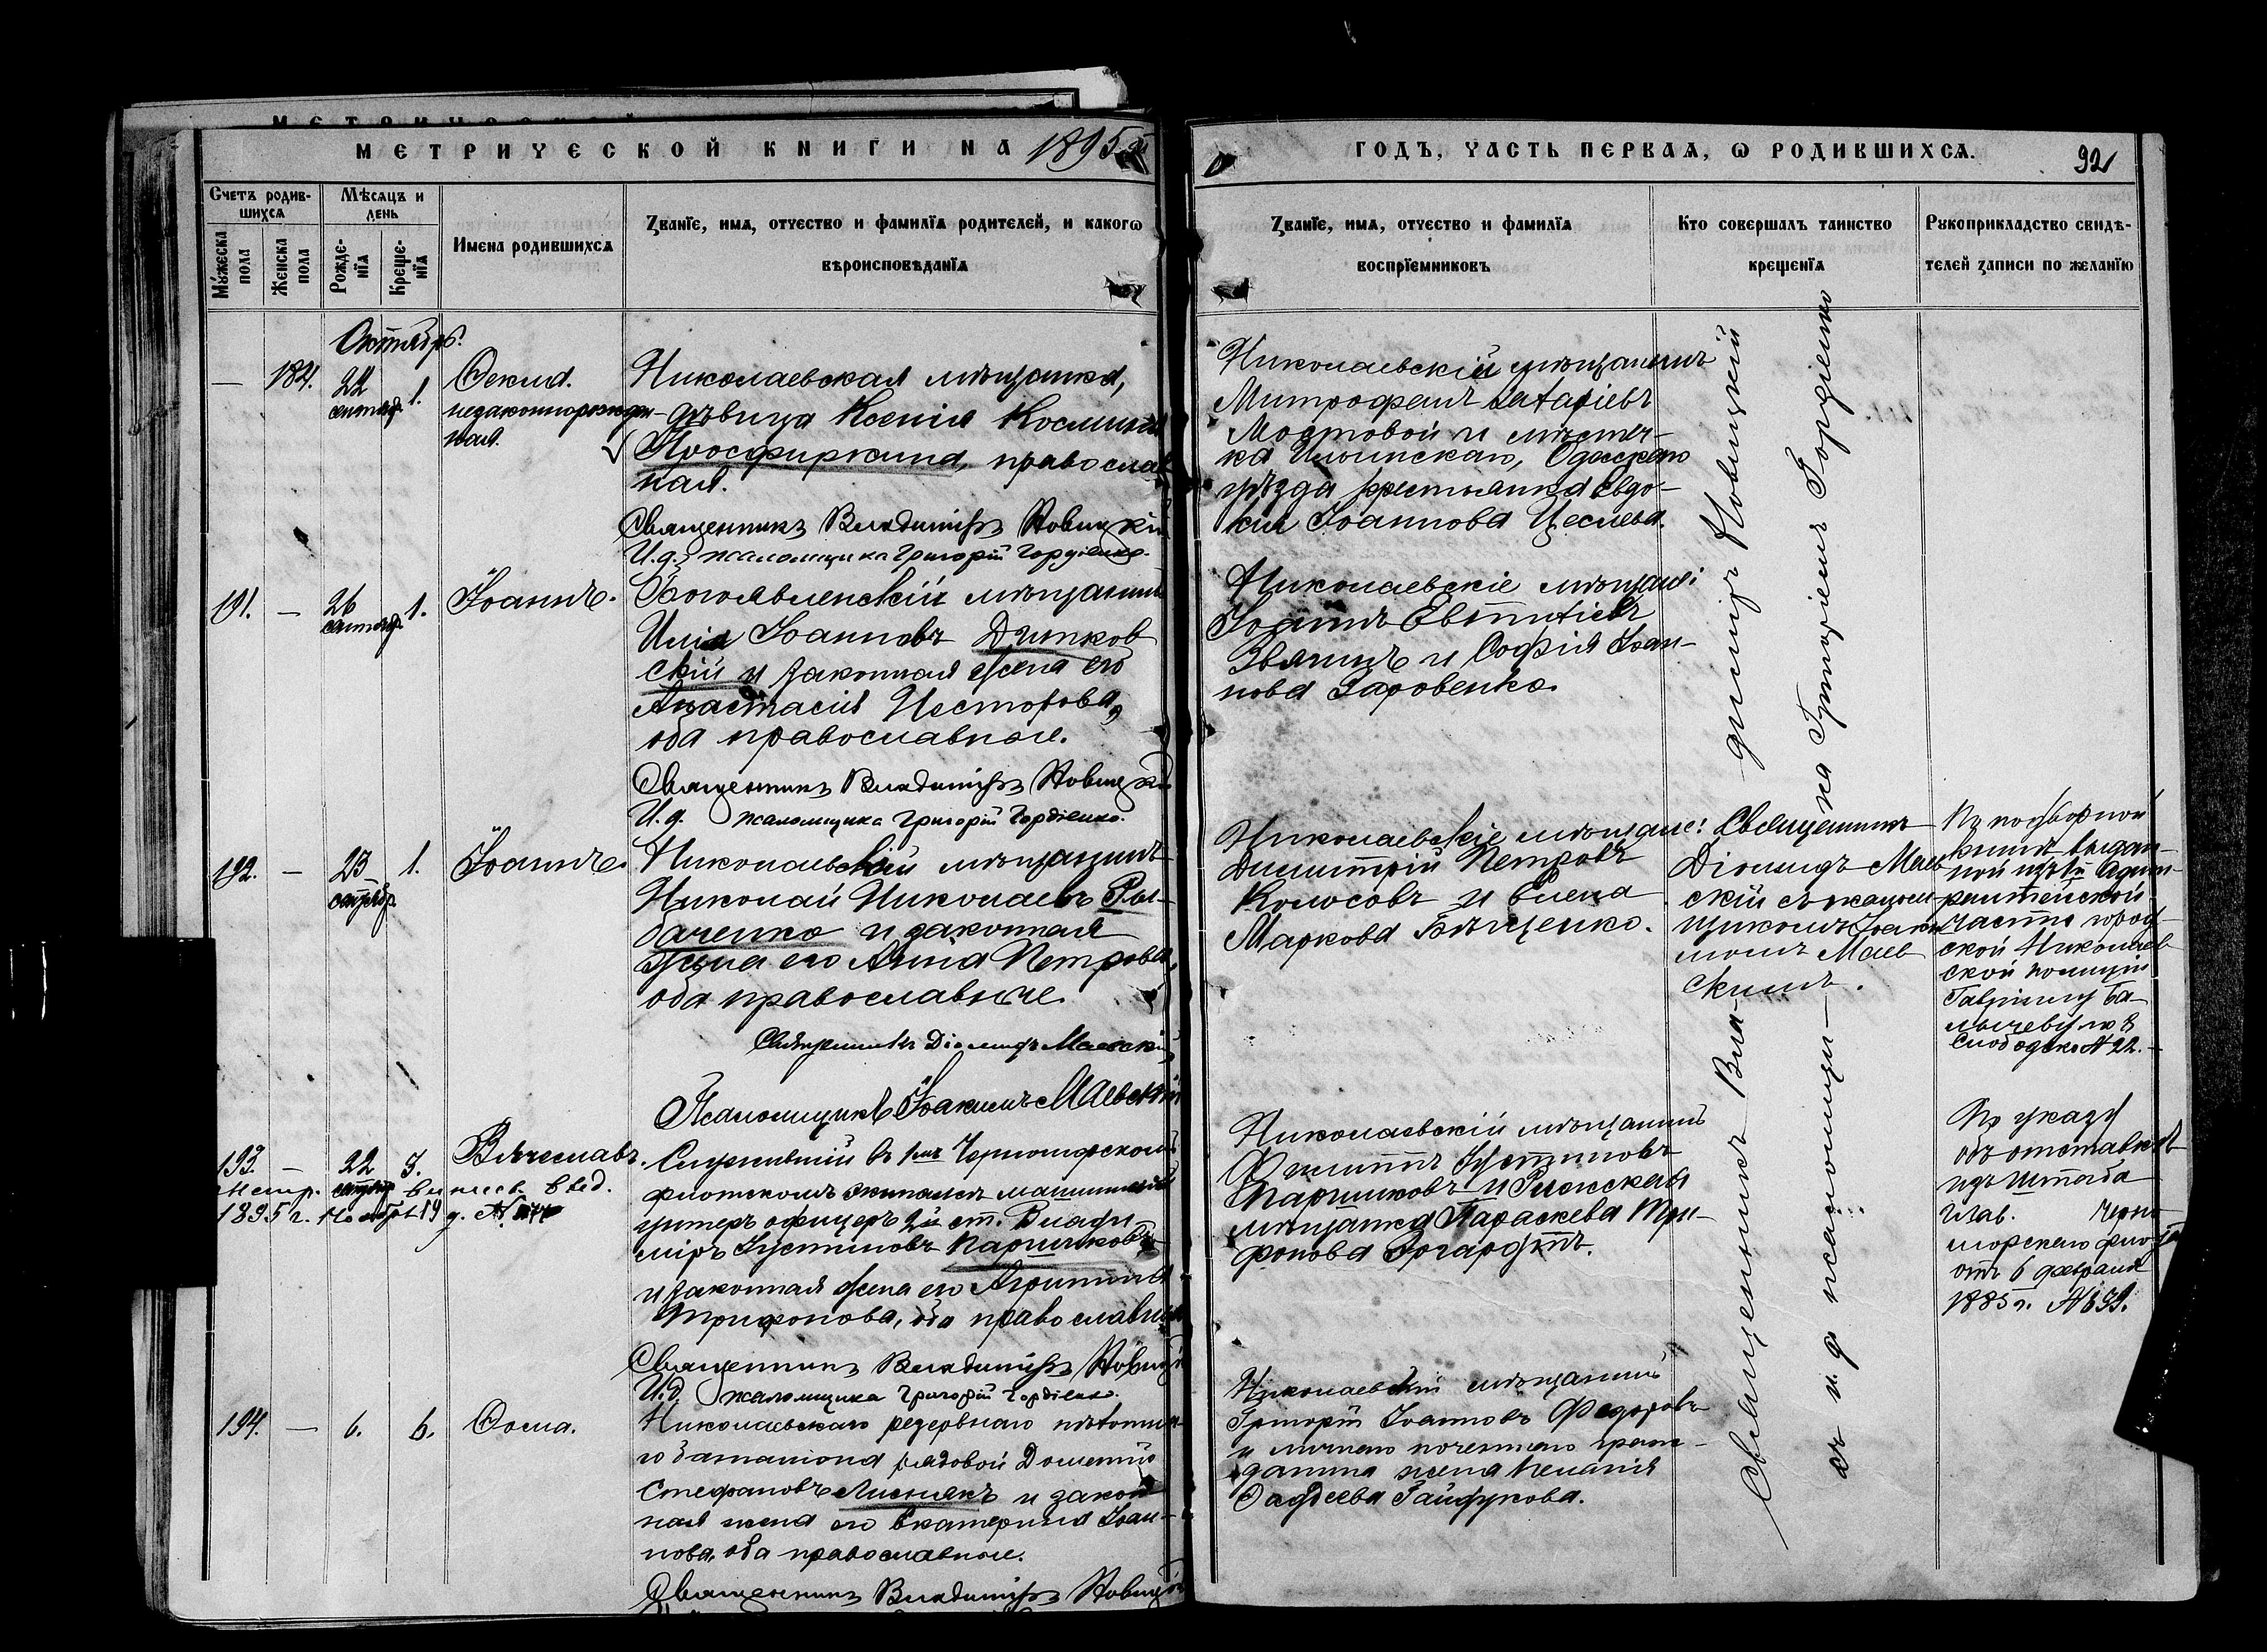 МЕТРИЧЕСКОЙ КНИГИ НА 1895
ГОДЪ, ЧАСТЬ ПЕРВАѦ, Ѡ РОДИВШИХСѦ.
92
Счетъ родив-
шихсѧ
Мѣсѧцъ и
день
Мꙋжеска
пола
Женска
пола
Рожде-
нїѧ
Креще-
нїѧ
Имена родившихсѧ
Званїе, имѧ, отчество и фамилїѧ родителей, и какогѡ
вѣроисповѣданїѧ
Званїе, имѧ, отчество и фамилїѧ
воспрїемниковъ
Кто совершалъ таинство
крещенїѧ
Рꙋкоприкладство свидѣ-
телей записи по желанїю
Октябрь.
— 184. 22 сентяб. 1.
Ѳекла.
незаконнорожден-
ная.
Николаевская мѣщанка,
дѣвица Ксенія Космина
Просфиркина, православ
ная.
Священникъ Владиміръ Новицкій
И.д. псаломщика Григорій Гордіенко.
Николаевскій мѣщанинъ
Митрофанъ
Мостовой и мѣстеч-
ка Одесскаго
уѣзда крестьянка Евдо-
кія Іоаннова
191. — 26 сентяб. 1.
Іоаннъ.
Богоявленскій мѣщанинъ
Илія Іоанновъ Дзитков
скій и законная жена его
Анастасія Несторова,
оба православные.
Священникъ Владиміръ Новицкій
И.д. псаломщика Григорій Гордіенко.
Николаевскіе мѣщане:
Іоаннъ Евтихіевъ
Звягинъ и Софія Іоан-
нова Заровенко.
192. — 23 сентябр. 1.
Іоаннъ.
Николаевскій мѣщанинъ
Николай Николаевъ Ры-
баченко и законная
жена его Анна Петрова,
оба православные.
Священникъ Діомидъ Маевскій
Псаломщикъ Іоакимъ Маевскій
Николаевскіе мѣщане:
Димитрій Петровъ
Колосовъ и Елена
Маркова Бѣщенко.
Священникъ
Діомидъ Маев
скій съ псалом-
щикомъ Іоаки
момъ Маев
скимъ.
По подворной
книгѣ выдан-
ной изъ Адми-
ралтейской
части город
ской Николаев
ской полиціи
Слободск. № 22.
193. — 22 сентяб. 3.
Вячеславъ.
Метр. выписъ выд.
1895 г. Ноября 19 д. №
Служившій въ Черноморскомъ
флотскомъ экипажѣ машинный
унтеръ офицеръ 2й ст. Влади-
міръ Іустиновъ Паршиковъ
и законная жена его Агриппина
Трифонова, оба православные
Священникъ Владиміръ Новицкій
И.д. псаломщика Григорій Гордіенко.
Николаевскій мѣщанинъ
Филиппъ Іустиновъ
Паршиковъ и Рижская
мѣщанка Параскева Три-
фонова
По указу
объ отставкѣ
изъ штаба
Глав. Черно
морскаго флота
отъ 6 февраля
1885 г. № 699.
194. — 6. 6.
Ѳома.
Николаевскаго резервнаго пѣхотна-
го баталіона рядовой Дометій
Стефановъ Лиснякъ и закон
ная жена его Екатерина Іоан-
нова, оба православные.
Священникъ Владиміръ Новицкій
Николаевскій мѣщанинъ
Григорій Іоанновъ Федоровъ
и личнаго почетнаго граж-
данина жена Пелагія
Фаддеева Гайдукова.
Священникъ Владиміръ Новицкій
съ и. д. псаломщика Григоріемъ Гордіенко